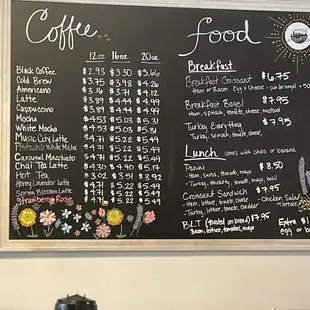 Coffee
12oz 16oz 20oz
Black Coffee $2.93 $3.30 $3.66
Cold Brew $3.75 $3.98 $4.26
Americano $3.16 $3.71 $4.12
Latte $3.89 $4.44 $4.99
Cappuccino $3.89 $4.44 $4.99
Mocha $4.53 $5.03 $5.31
White Mocha $4.53 $5.03 $5.31
Music City Latte $4.71 $5.22 $5.49
Pistachio White Mocha $4.71 $5.22 $5.49
Caramel Macchiato $4.71 $5.22 $5.49
Chai Tea Latte $4.30 $4.90 $5.17
Hot Tea $3.02 $3.51 $3.92
Honey Lavender Latte $4.71 $5.22 $5.49
Spring Blossom Latte $4.71 $5.22 $5.49
Strawberry Rose $4.71 $5.22 $5.49
food
Breakfast
Breakfast Croissant $6.75
Ham or Bacon Egg + Cheese
Breakfast Bagel $7.95
Ham, spinach, tomato, cheese, mustard
Turkey Everything $7.95
Turkey, spinach, tomato, cheese
Lunch comes with chips or banana
Panini $8.50
- Ham, swiss, tomato, mayo
- Turkey, tomato, mayo, basil
Croissant Sandwich $7.95
- Ham, lettuce, tomato, cheese
- Turkey, lettuce, tomato, cheddar
- Chicken Salad
+ lettuce
BLT (toasted on bread) $7.95
Bacon, lettuce, tomatoes, mayo
Extra $1
egg or b